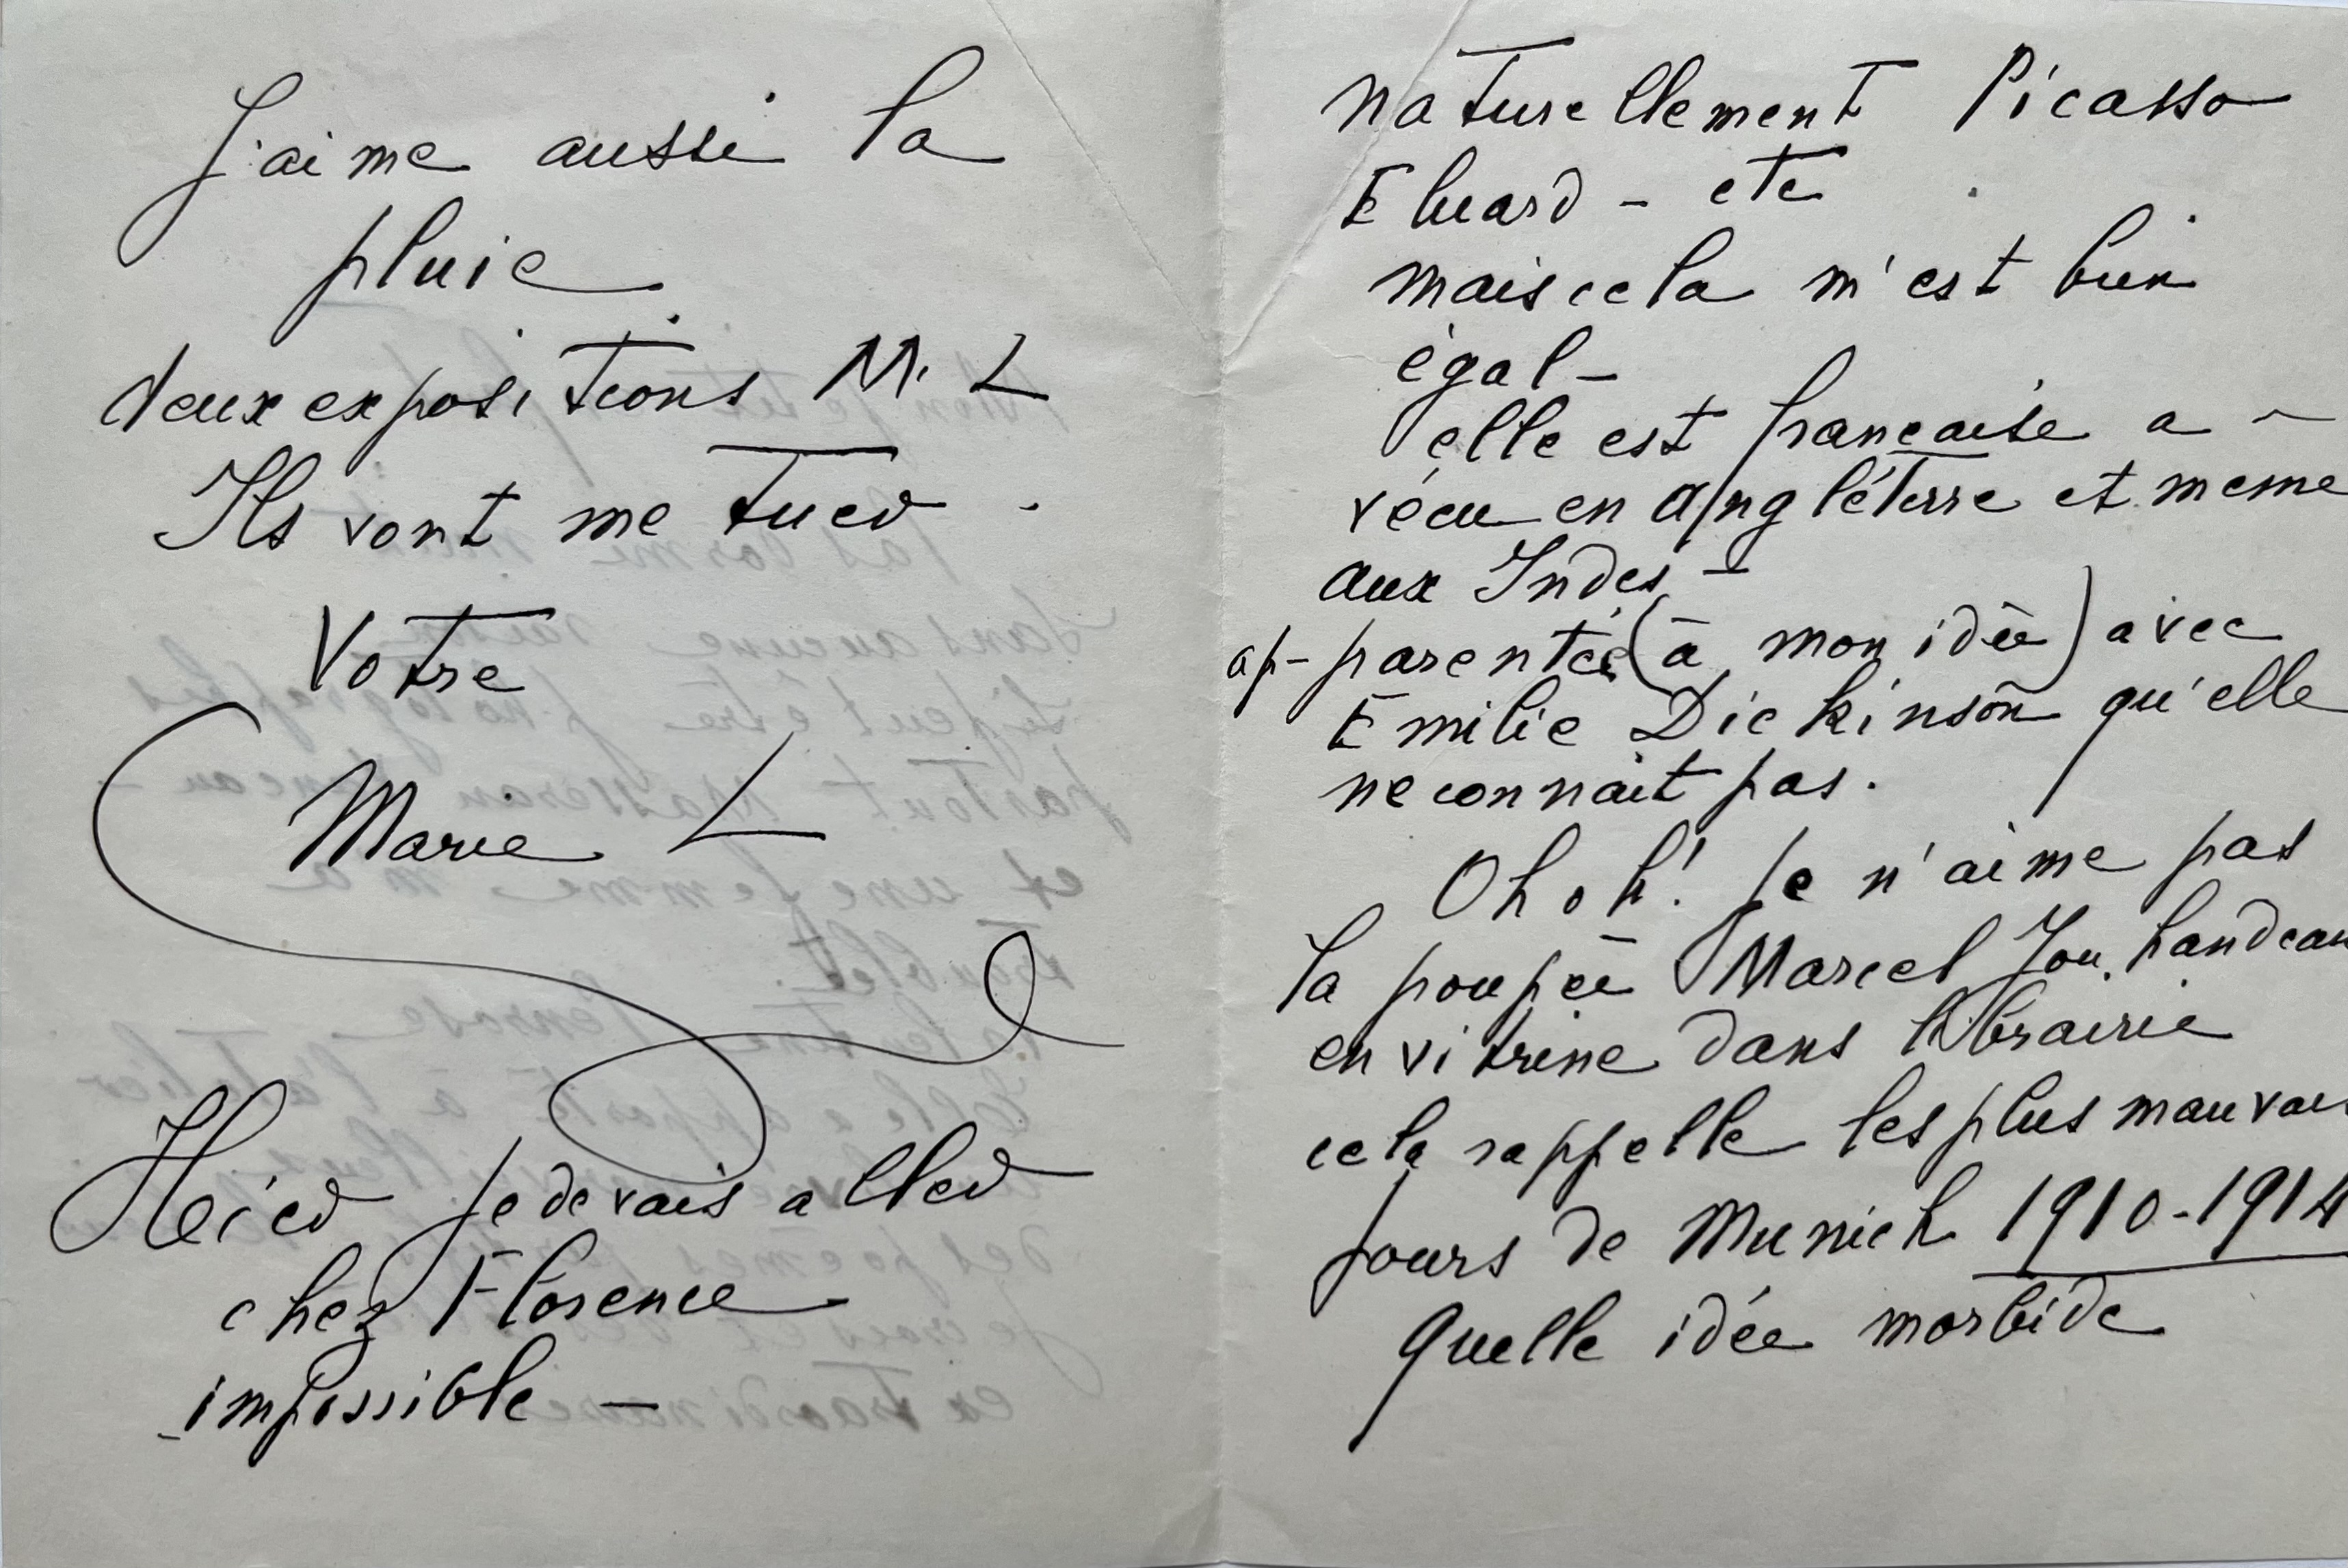 J'aime aussi la
pluie.
deux expositions M. L
Ils vont me tuer -
Votre
Marie L
Hier je devais aller
chez Florence
impossible -
naturellement Picasso
Eluard - etc
mais cela m'est bien
égal -
elle est française a -
vécu en Angléterre et meme
aux Indes -
ap-parentée (à mon idée) avec
Emilie Dickinson qu'elle
ne connait pas.
Oh oh! Je n'aime pas
la poupée Marcel Jouhandeau
en vitrine dans librairie
cela rappelle les plus mauvais
jours de Munich 1910-1914
quelle idée morbide